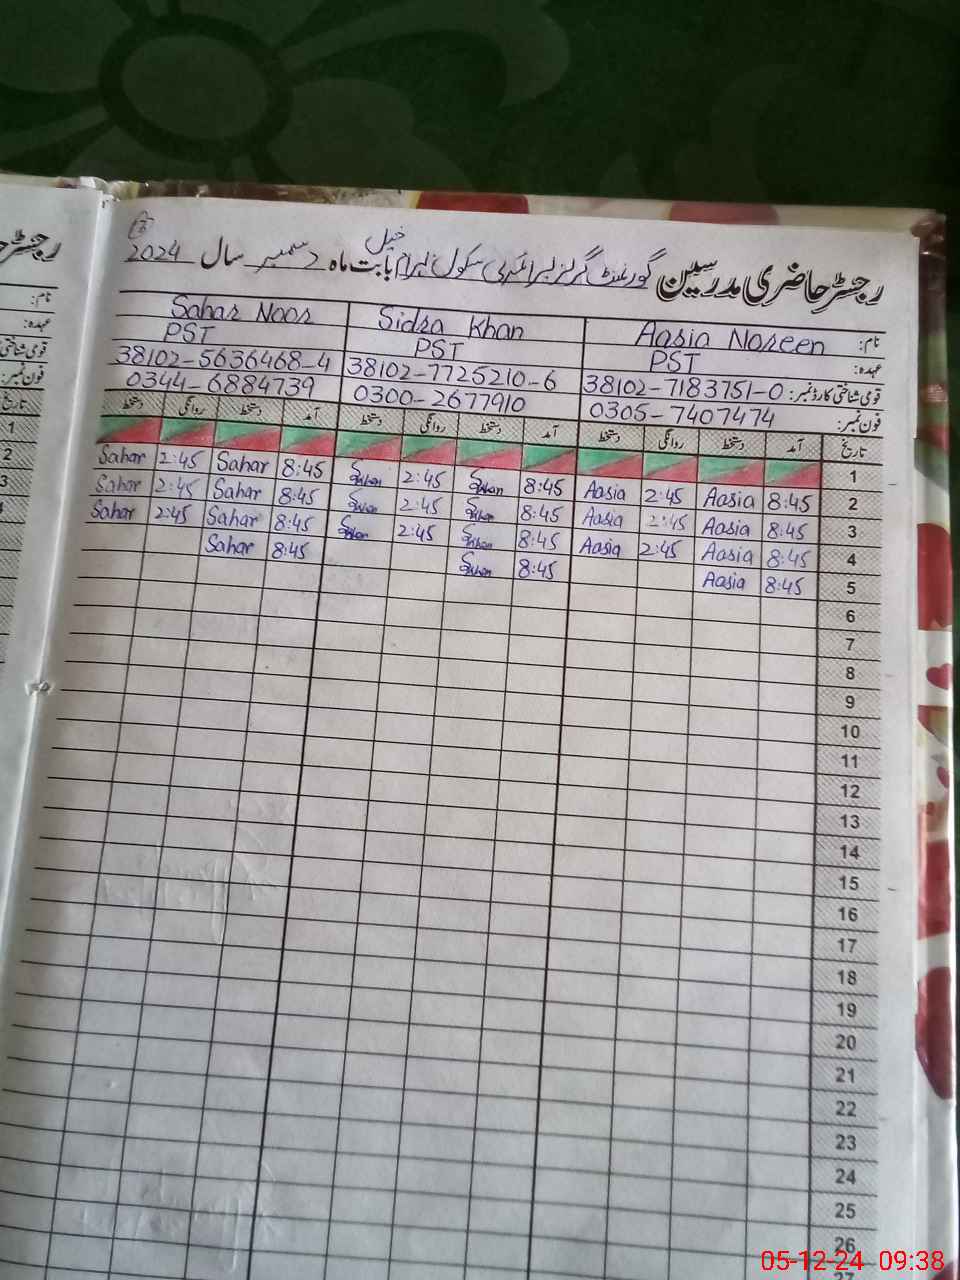 رجسٹر حاضری مدرسین گورنمنٹ گرلز پرائمری سکول بہرام خیل بابت ماہ دسمبر سال 2024
نام: Aasia Noreen Sidra Khan Sahar Noor
عہدہ: PST PST PST
قومی شناختی کارڈ نمبر: 38102-7183751-0 38102-7725210-6 38102-5636468-4
فون نمبر: 0305-7407474 0300-2677910 0344-6884739
تاریخ آمد دستخط روانگی دستخط آمد دستخط روانگی دستخط آمد دستخط روانگی دستخط
1
2 8:45 Aasia 2:45 Aasia 8:45 2:45 8:45 Sahar 2:45 Sahar
3 8:45 Aasia 2:45 Aasia 8:45 2:45 8:45 Sahar 2:45 Sahar
4 8:45 Aasia 2:45 Aasia 8:45 2:45 8:45 Sahar 2:45 Sahar
5 8:45 Aasia 8:45 8:45 Sahar
6
7
8
9
10
11
12
13
14
15
16
17
18
19
20
21
22
23
24
25
26
27
رجسٹر
نام:
عہدہ:
قومی شناختی
فون نمبر:
تاریخ
1
2
3
4
05-12-24 09:38